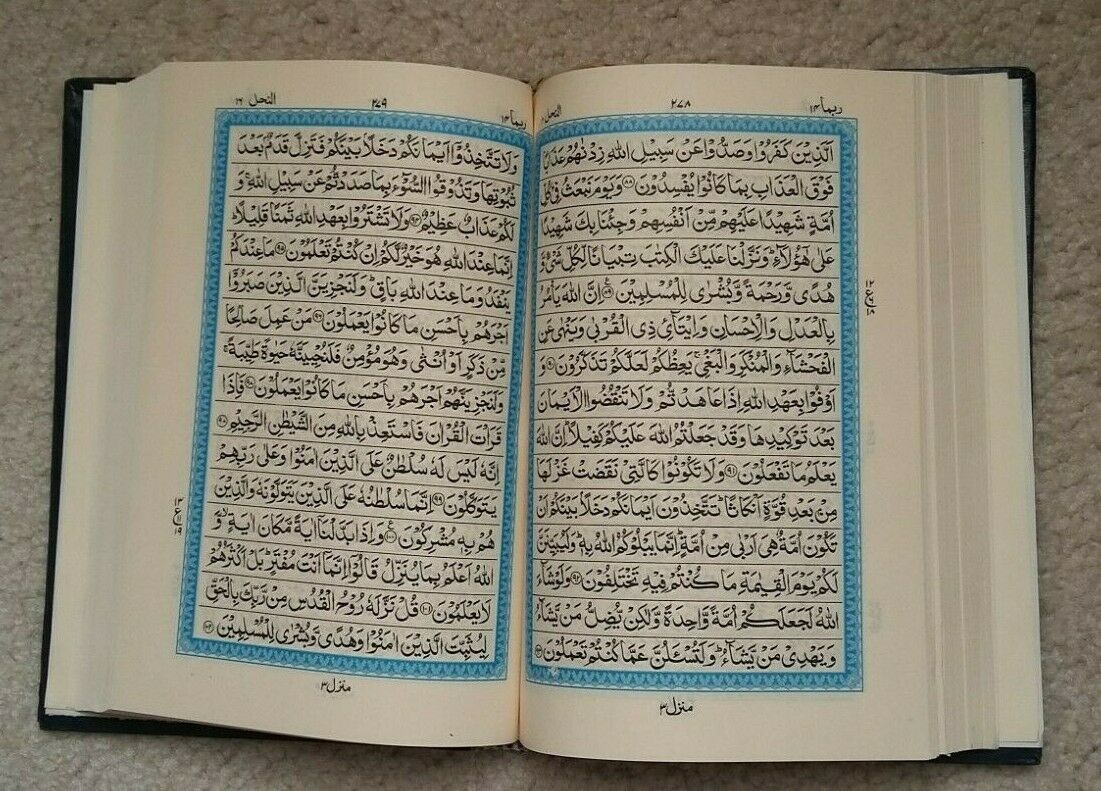 ربما ١٤
٢٧٨
النحل
اَلَّذِيْنَ كَفَرُوْا وَصَدُّوْا عَنْ سَبِيْلِ اللّٰهِ زِدْنٰهُمْ عَذَابًا
فَوْقَ الْعَذَابِ بِمَا كَانُوْا يُفْسِدُوْنَ ﴿۸۸﴾ وَيَوْمَ نَبْعَثُ فِيْ كُلِّ
اُمَّةٍ شَهِيْدًا عَلَيْهِمْ مِّنْ اَنْفُسِهِمْ وَجِئْنَا بِكَ شَهِيْدًا
عَلٰى هٰٓؤُلَآءِ ؕ وَنَزَّلْنَا عَلَيْكَ الْكِتٰبَ تِبْيَانًا لِّكُلِّ شَيْءٍ وَّ
هُدًى وَّرَحْمَةً وَّبُشْرٰى لِلْمُسْلِمِيْنَ ﴿۸۹﴾ اِنَّ اللّٰهَ يَاْمُرُ
بِالْعَدْلِ وَالْاِحْسَانِ وَاِيْتَآئِ ذِي الْقُرْبٰى وَيَنْهٰى عَنِ
الْفَحْشَآءِ وَالْمُنْكَرِ وَالْبَغْيِ ۚ يَعِظُكُمْ لَعَلَّكُمْ تَذَكَّرُوْنَ ﴿۹۰﴾ وَ
اَوْفُوْا بِعَهْدِ اللّٰهِ اِذَا عَاهَدْتُّمْ وَلَا تَنْقُضُوا الْاَيْمَانَ
بَعْدَ تَوْكِيْدِهَا وَقَدْ جَعَلْتُمُ اللّٰهَ عَلَيْكُمْ كَفِيْلًا ؕ اِنَّ اللّٰهَ
يَعْلَمُ مَا تَفْعَلُوْنَ ﴿۹۱﴾ وَلَا تَكُوْنُوْا كَالَّتِيْ نَقَضَتْ غَزْلَهَا
مِنْۢ بَعْدِ قُوَّةٍ اَنْكَاثًا ؕ تَتَّخِذُوْنَ اَيْمَانَكُمْ دَخَلًۢا بَيْنَكُمْ اَنْ
تَكُوْنَ اُمَّةٌ هِيَ اَرْبٰى مِنْ اُمَّةٍ ؕ اِنَّمَا يَبْلُوْكُمُ اللّٰهُ بِهٖ ؕ وَلَيُبَيِّنَنَّ
لَكُمْ يَوْمَ الْقِيٰمَةِ مَا كُنْتُمْ فِيْهِ تَخْتَلِفُوْنَ ﴿۹۲﴾ وَلَوْ شَآءَ
اللّٰهُ لَجَعَلَكُمْ اُمَّةً وَّاحِدَةً وَّلٰكِنْ يُّضِلُّ مَنْ يَّشَآءُ
وَيَهْدِيْ مَنْ يَّشَآءُ ؕ وَلَتُسْـَٔلُنَّ عَمَّا كُنْتُمْ تَعْمَلُوْنَ ﴿۹۳﴾
١٢
ع
١٨
منزل ٣
ربما ١٤
٢٧٩
النحل ١٦
وَلَا تَتَّخِذُوْٓا اَيْمَانَكُمْ دَخَلًۢا بَيْنَكُمْ فَتَزِلَّ قَدَمٌۢ بَعْدَ
ثُبُوْتِهَا وَتَذُوْقُوا السُّوْٓءَ بِمَا صَدَدْتُّمْ عَنْ سَبِيْلِ اللّٰهِ ۚ وَ
لَكُمْ عَذَابٌ عَظِيْمٌ ﴿۹۴﴾ وَلَا تَشْتَرُوْا بِعَهْدِ اللّٰهِ ثَمَنًا قَلِيْلًا ؕ
اِنَّمَا عِنْدَ اللّٰهِ هُوَ خَيْرٌ لَّكُمْ اِنْ كُنْتُمْ تَعْلَمُوْنَ ﴿۹۵﴾ مَا عِنْدَكُمْ
يَنْفَدُ وَمَا عِنْدَ اللّٰهِ بَاقٍ ؕ وَلَنَجْزِيَنَّ الَّذِيْنَ صَبَرُوْٓا
اَجْرَهُمْ بِاَحْسَنِ مَا كَانُوْا يَعْمَلُوْنَ ﴿۹۶﴾ مَنْ عَمِلَ صَالِحًا
مِّنْ ذَكَرٍ اَوْ اُنْثٰى وَهُوَ مُؤْمِنٌ فَلَنُحْيِيَنَّهٗ حَيٰوةً طَيِّبَةً ۚ
وَلَنَجْزِيَنَّهُمْ اَجْرَهُمْ بِاَحْسَنِ مَا كَانُوْا يَعْمَلُوْنَ ﴿۹۷﴾ فَاِذَا
قَرَاْتَ الْقُرْاٰنَ فَاسْتَعِذْ بِاللّٰهِ مِنَ الشَّيْطٰنِ الرَّجِيْمِ ﴿۹۸﴾
اِنَّهٗ لَيْسَ لَهٗ سُلْطٰنٌ عَلَى الَّذِيْنَ اٰمَنُوْا وَعَلٰى رَبِّهِمْ
يَتَوَكَّلُوْنَ ﴿۹۹﴾ اِنَّمَا سُلْطٰنُهٗ عَلَى الَّذِيْنَ يَتَوَلَّوْنَهٗ وَالَّذِيْنَ
هُمْ بِهٖ مُشْرِكُوْنَ ﴿۱۰۰﴾ وَاِذَا بَدَّلْنَآ اٰيَةً مَّكَانَ اٰيَةٍ ۙ وَّ
اللّٰهُ اَعْلَمُ بِمَا يُنَزِّلُ قَالُوْٓا اِنَّمَآ اَنْتَ مُفْتَرٍ ؕ بَلْ اَكْثَرُهُمْ
لَا يَعْلَمُوْنَ ﴿۱۰۱﴾ قُلْ نَزَّلَهٗ رُوْحُ الْقُدُسِ مِنْ رَّبِّكَ بِالْحَقِّ
لِيُثَبِّتَ الَّذِيْنَ اٰمَنُوْا وَهُدًى وَّبُشْرٰى لِلْمُسْلِمِيْنَ ﴿۱۰۲﴾
١٣
ع
١٩
منزل ٣